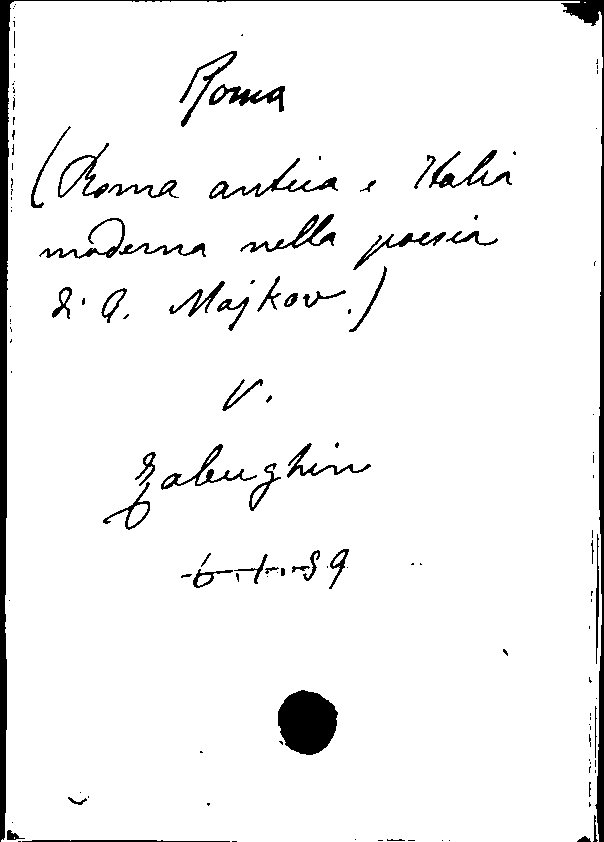 Roma
(Roma antica e Italia
moderna nella poesia
di A. Majkov.)
V.
Zabughin
6.I.59